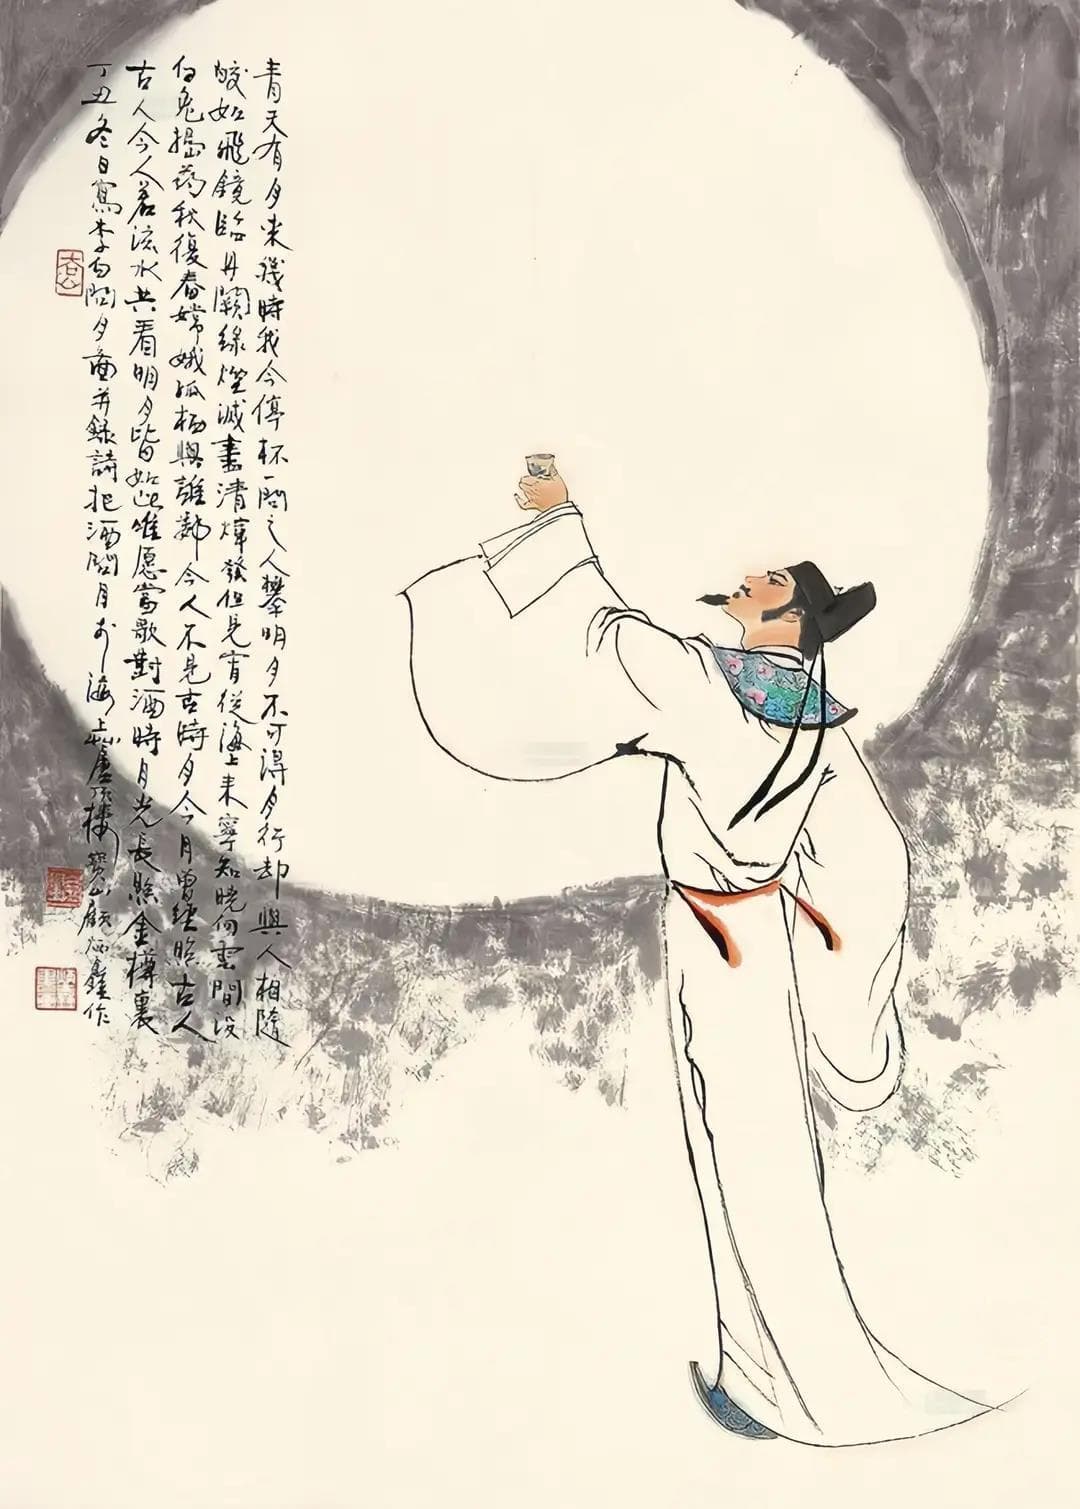 青天有月來幾時我今停杯一問之人攀明月不可得月行却與人相隨
皎如飛鏡臨丹闕綠煙滅盡清煇發但見宵從海上來寧知曉向雲間沒
白兔搗藥秋復春嫦娥孤栖與誰鄰今人不見古時月今月曾經照古人
古人今人若流水共看明月皆如此唯愿當歌對酒時月光長照金樽裏
丁丑冬日寫李白問月圖并錄詩把酒問月於海上廬頂樓寶山顧炳鑫作